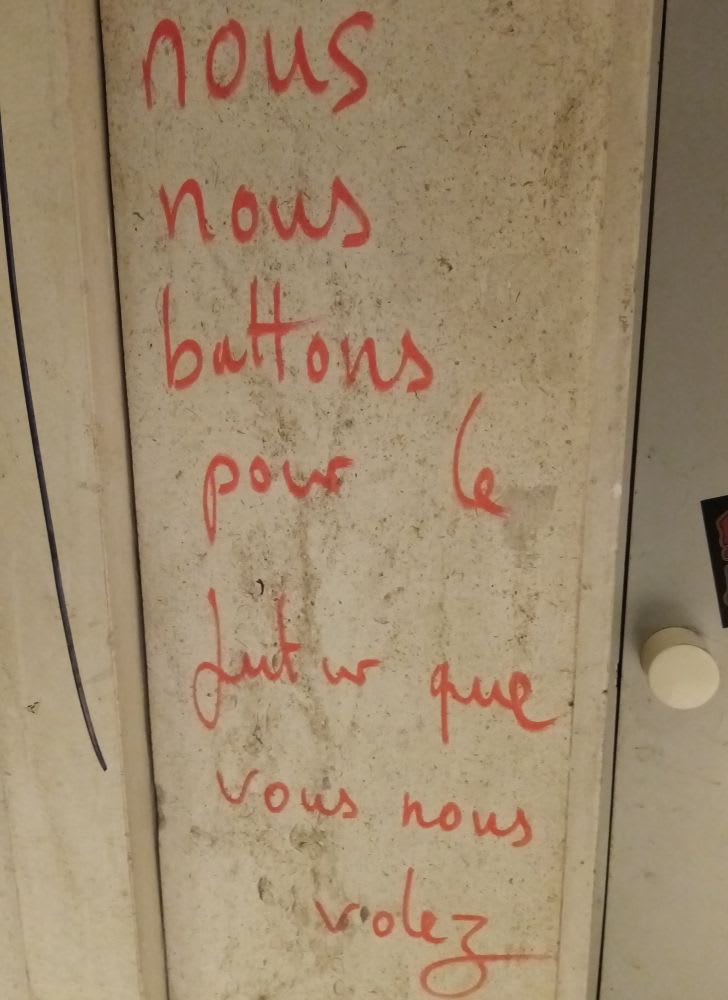 nous
nous
battons
pour le
futur que
vous nous
volez